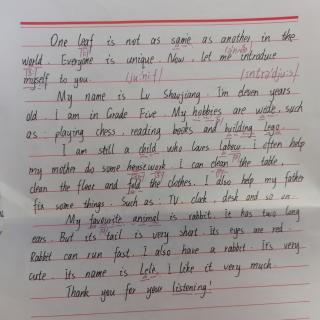 One leaf is not as same as another, in the
world. Everyone is unique. Now, let me introduce
myself to you. /ju'ni:k/ /ɪntrə'dju:s/
My name is Lv Shaojiang. I'm eleven years
old. I am in Grade Five. My hobbies are wide, such
as: playing chess, reading books and building lego.
I am still a child who loves labour. I often help
my mother do some housework. I can clean the table,
clean the floor and fold the clothes. I also help my father
fix some things. Such as: TV. clock, desk and so on.
My favourite animal is rabbit. it has two long
ears. But its tail is very short. Its eyes are red.
Rabbit can run fast. I also have a rabbit. It's very
cute. Its name is Lele. I like it very much.
Thank you for your listening!